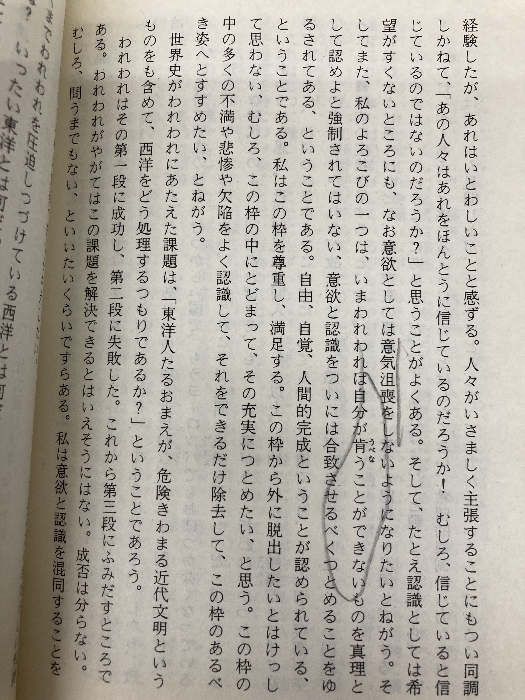 経験したが、あれはいとわしいことと感ずる。人々がいさましく主張することにもつい同調
しかねて、「あの人々はあれをほんとうに信じているのだろうか！　むしろ、信じていると信
じているのではないのだろうか？」と思うことがよくある。そして、たとえ認識としては希
望がすくないところにも、なお意欲としては意気沮喪をしないようになりたいとねがう。そ
してまた、私のよろこびの一つは、いまわれわれは自分が肯うことができないものを真理と
うべな
して認めよと強制されてはいない、意欲と認識をついには合致させるべくつとめることをゆ
るされてある、ということである。自由、自覚、人間的完成ということが認められている、
ということである。私はこの枠を尊重し、満足する。この枠から外に脱出したいとはけっし
て思わない、むしろ、この枠の中にとどまって、その充実につとめたい、と思う。この枠の
中の多くの不満や悲惨や欠陥をよく認識して、それをできるだけ除去して、この枠のあるべ
き姿へとすすめたい、とねがう。
世界史がわれわれにあたえた課題は、「東洋人たるおまえが、危険きわまる近代文明という
ものをも含めて、西洋をどう処理するつもりであるか？」ということであろう。
われわれはその第一段に成功し、第二段に失敗した。これから第三段にふみだすところで
ある。われわれがやがてはこの課題を解決できるとはいえそうにはない。成否は分らない。
むしろ、問うまでもない、といいたいくらいですらある。私は意欲と認識を混同することを
までわれわれを圧迫しつづけている西洋とは何
？　いったい東洋とは何